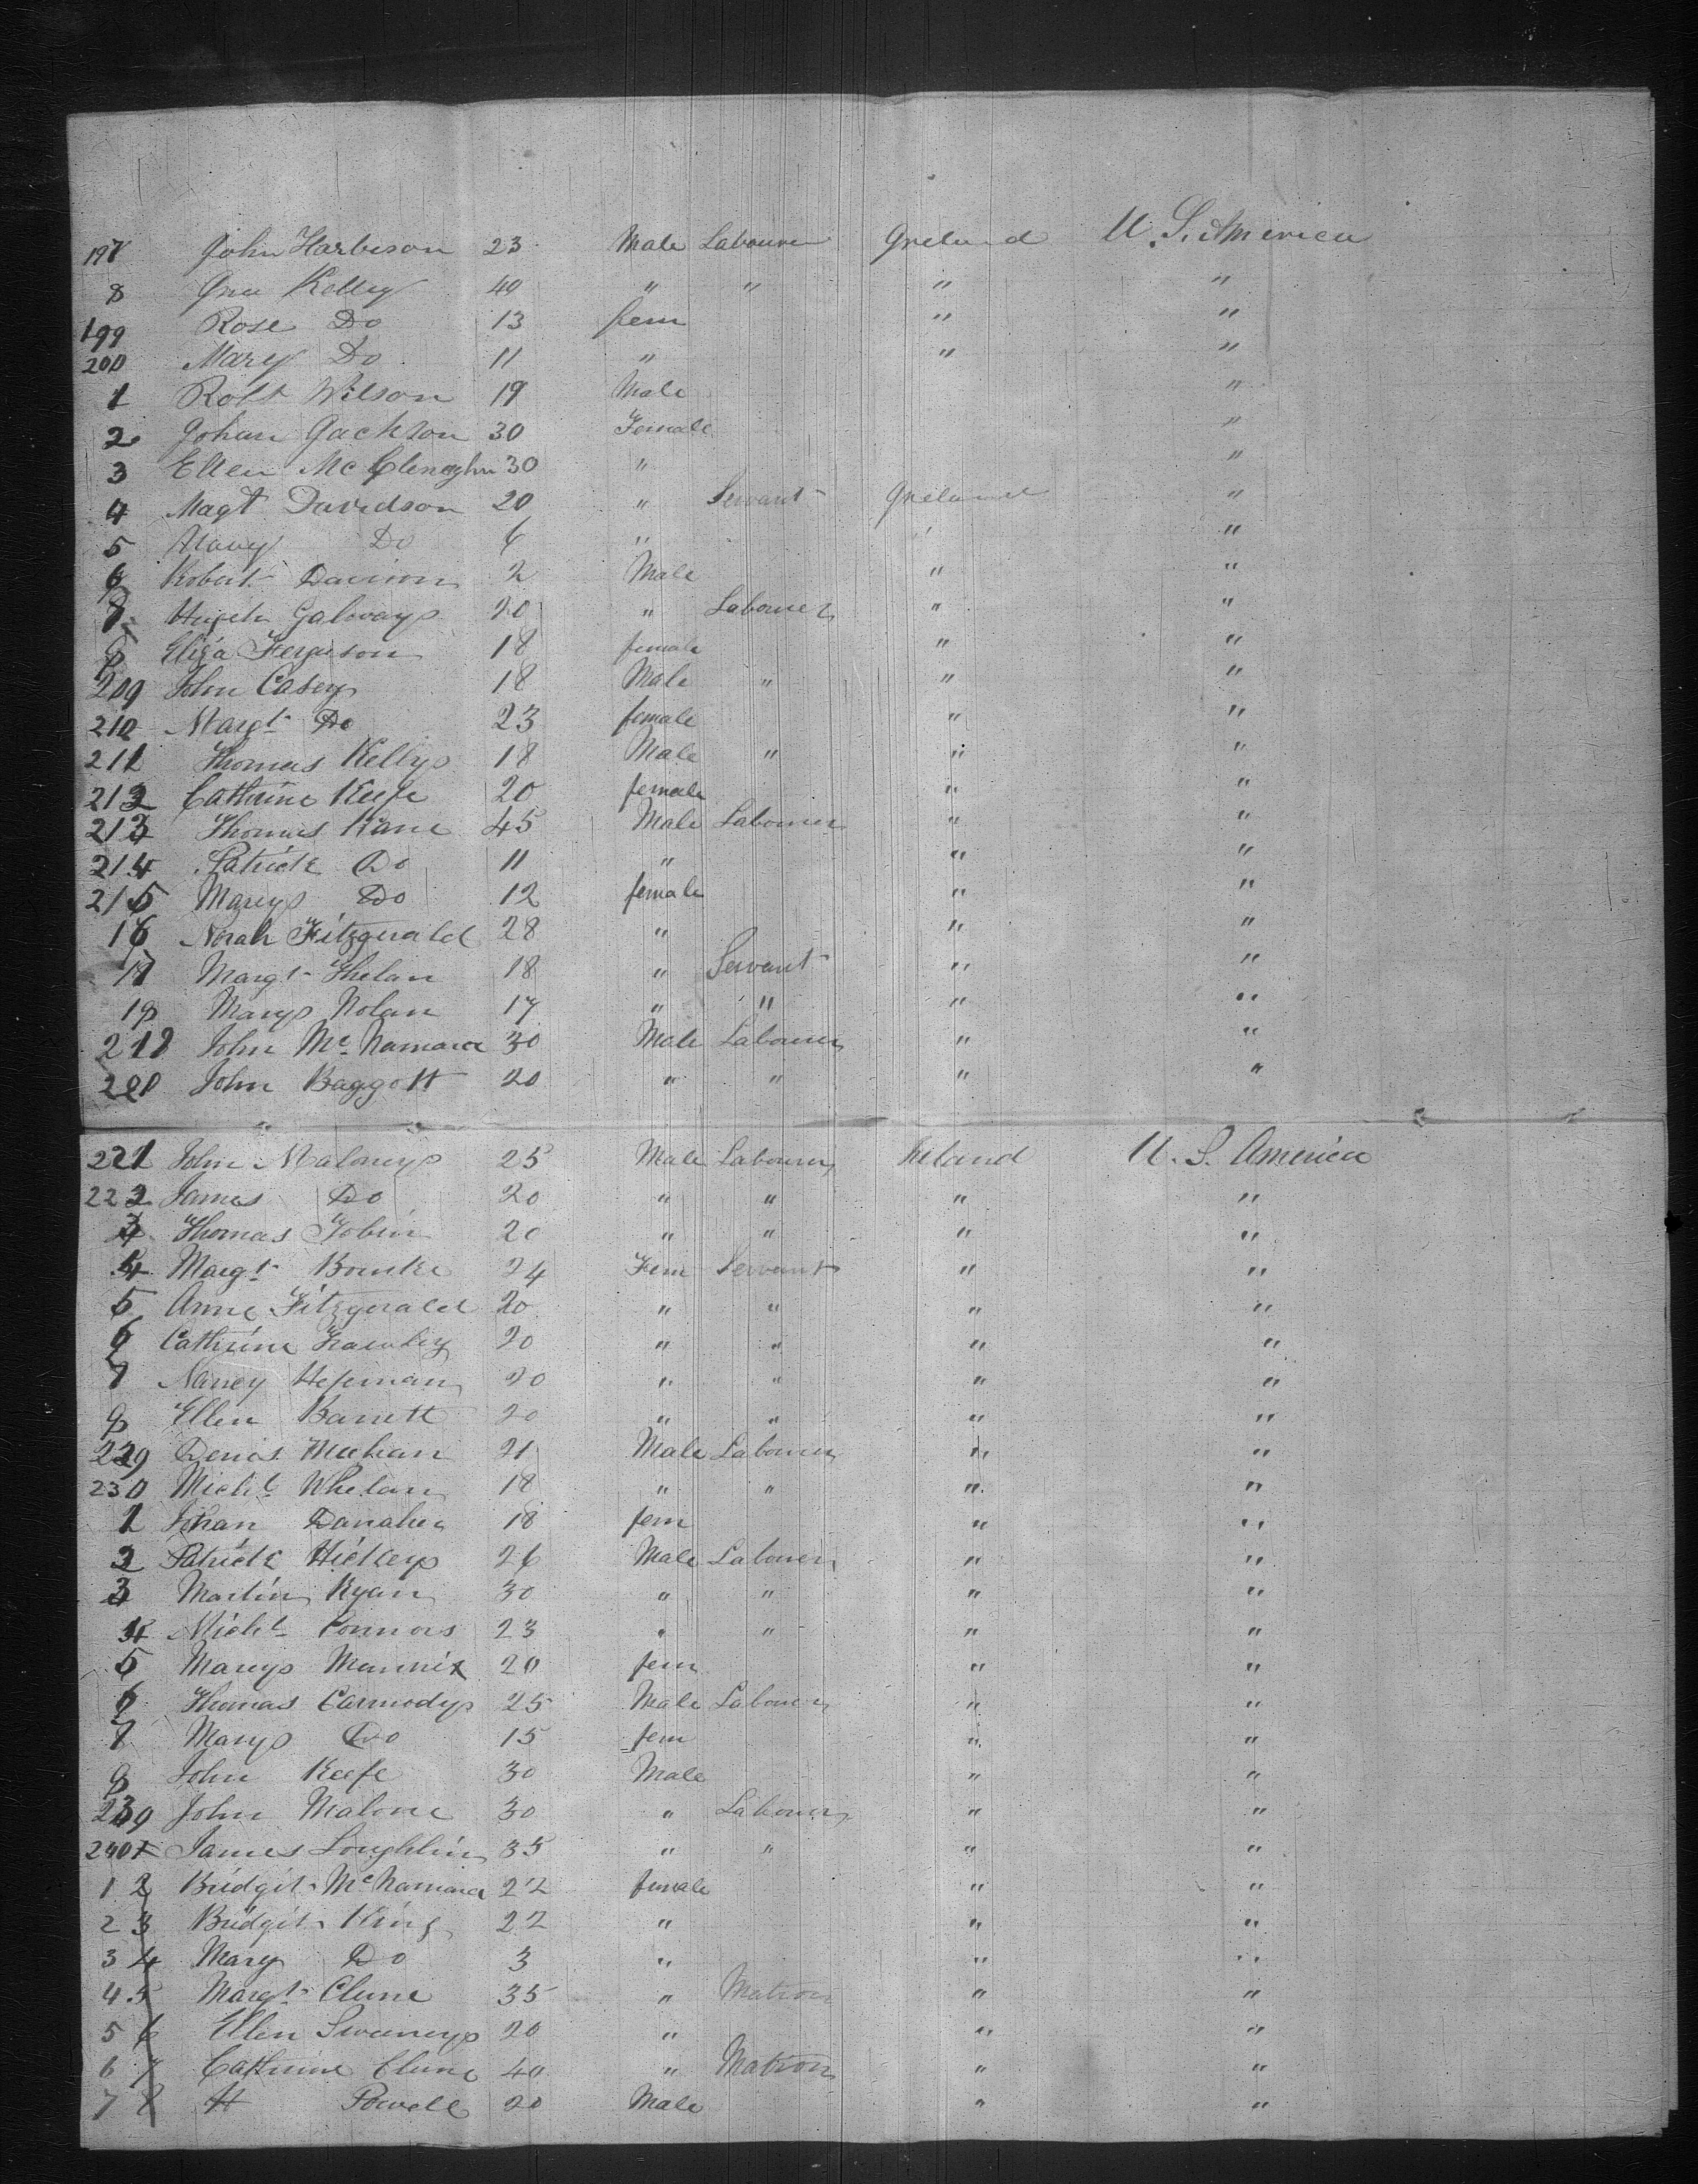 197 John Harbison 23 Male Labourer Ireland U. S. America
8 Kelly 40 " " " "
199 Rose Do 13 fem " "
200 Mary Do 11 " " "
1 Robt Wilson 19 Male "
2 Johan Jackson 30 Female "
3 Ellen 30 " "
4 Magt Davidson 20 " Servant Ireland "
5 Mary Do 6 " " "
6 Robert Davison 2 Male " "
7 Hugh Galway 20 " Labourer " "
8 Eliza Ferguson 18 female " "
209 John Casey 18 Male " " "
210 Margt Do 23 female " "
211 Thomas Kelly 18 Male " " "
212 Cathrine Keefe 20 female " "
213 Thomas Kane 45 Male Labourer " "
214 Patrick Do 11 " " "
215 Mary Do 12 female " "
16 Norah Fitzgerald 28 " " "
17 Margt 18 " Servant " "
18 Mary Nolan 17 " " " "
219 John McNamara 30 Male Labourer " "
220 John Baggott 20 " " " "
221 John Maloney 25 Male Labourer Ireland U. S. America
222 James Do 20 " " " "
3 Thomas Tobin 20 " " " "
4 Margt Bourke 24 Fem Servant " "
5 Anne Fitzgerald 20 " " " "
6 Cathrine Frawley 20 " " " "
7 Nancy Hefernan 20 " " " "
8 Ellen Barrett 20 " " " "
229 Denis Meehan 21 Male Labourer " "
230 Michl Whelan 18 " " " "
1 Johan Danaher 18 fem " "
2 Patrick Hickey 26 Male Labourer " "
3 Martin Ryan 30 " " " "
4 Michl Connors 23 " " " "
5 Mary Mannix 20 fem " "
6 Thomas Carmody 25 Male Labourer " "
7 Mary Do 15 fem " "
8 John Keefe 30 Male " "
239 John Malone 30 " Labourer " "
240 James Loughlin 35 " " " "
1 2 Bridgit McNamara 22 female " "
2 3 Bridgit King 22 " " "
3 4 Mary Do 3 " " "
4 5 Margt Clune 35 " Matron " "
5 6 Ellen Sweeney 20 " " "
6 7 Cathrine Clune 40 " Matron " "
7 8 H Powell 20 Male " "